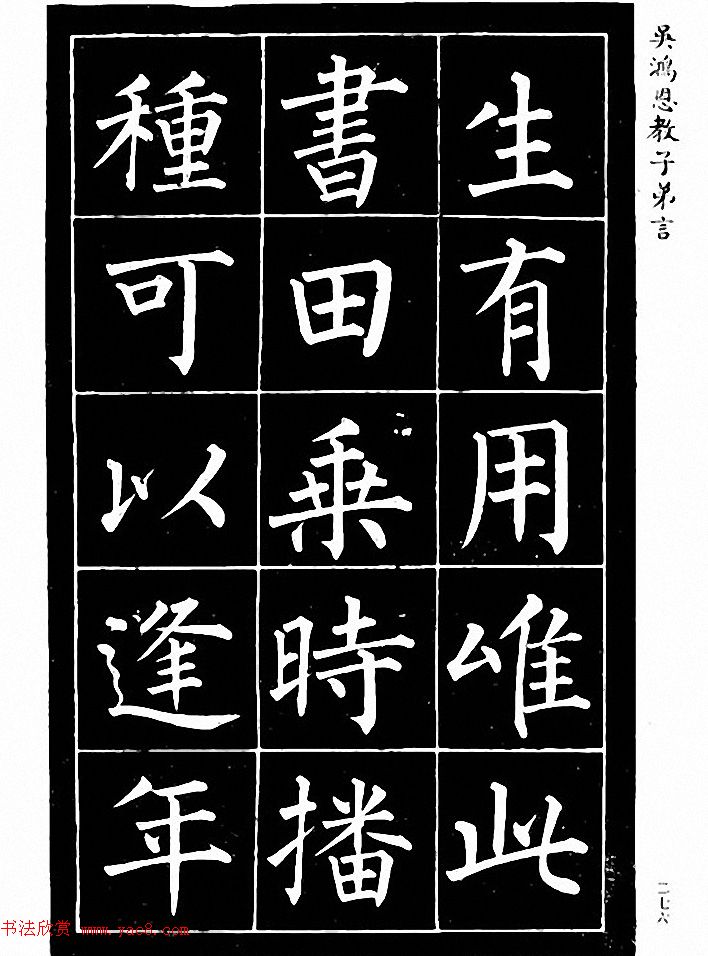 吳鴻恩教子弟言
生有用唯此
書田乗時播
種可以逢年
二七六
书法欣赏 www.yac8.com